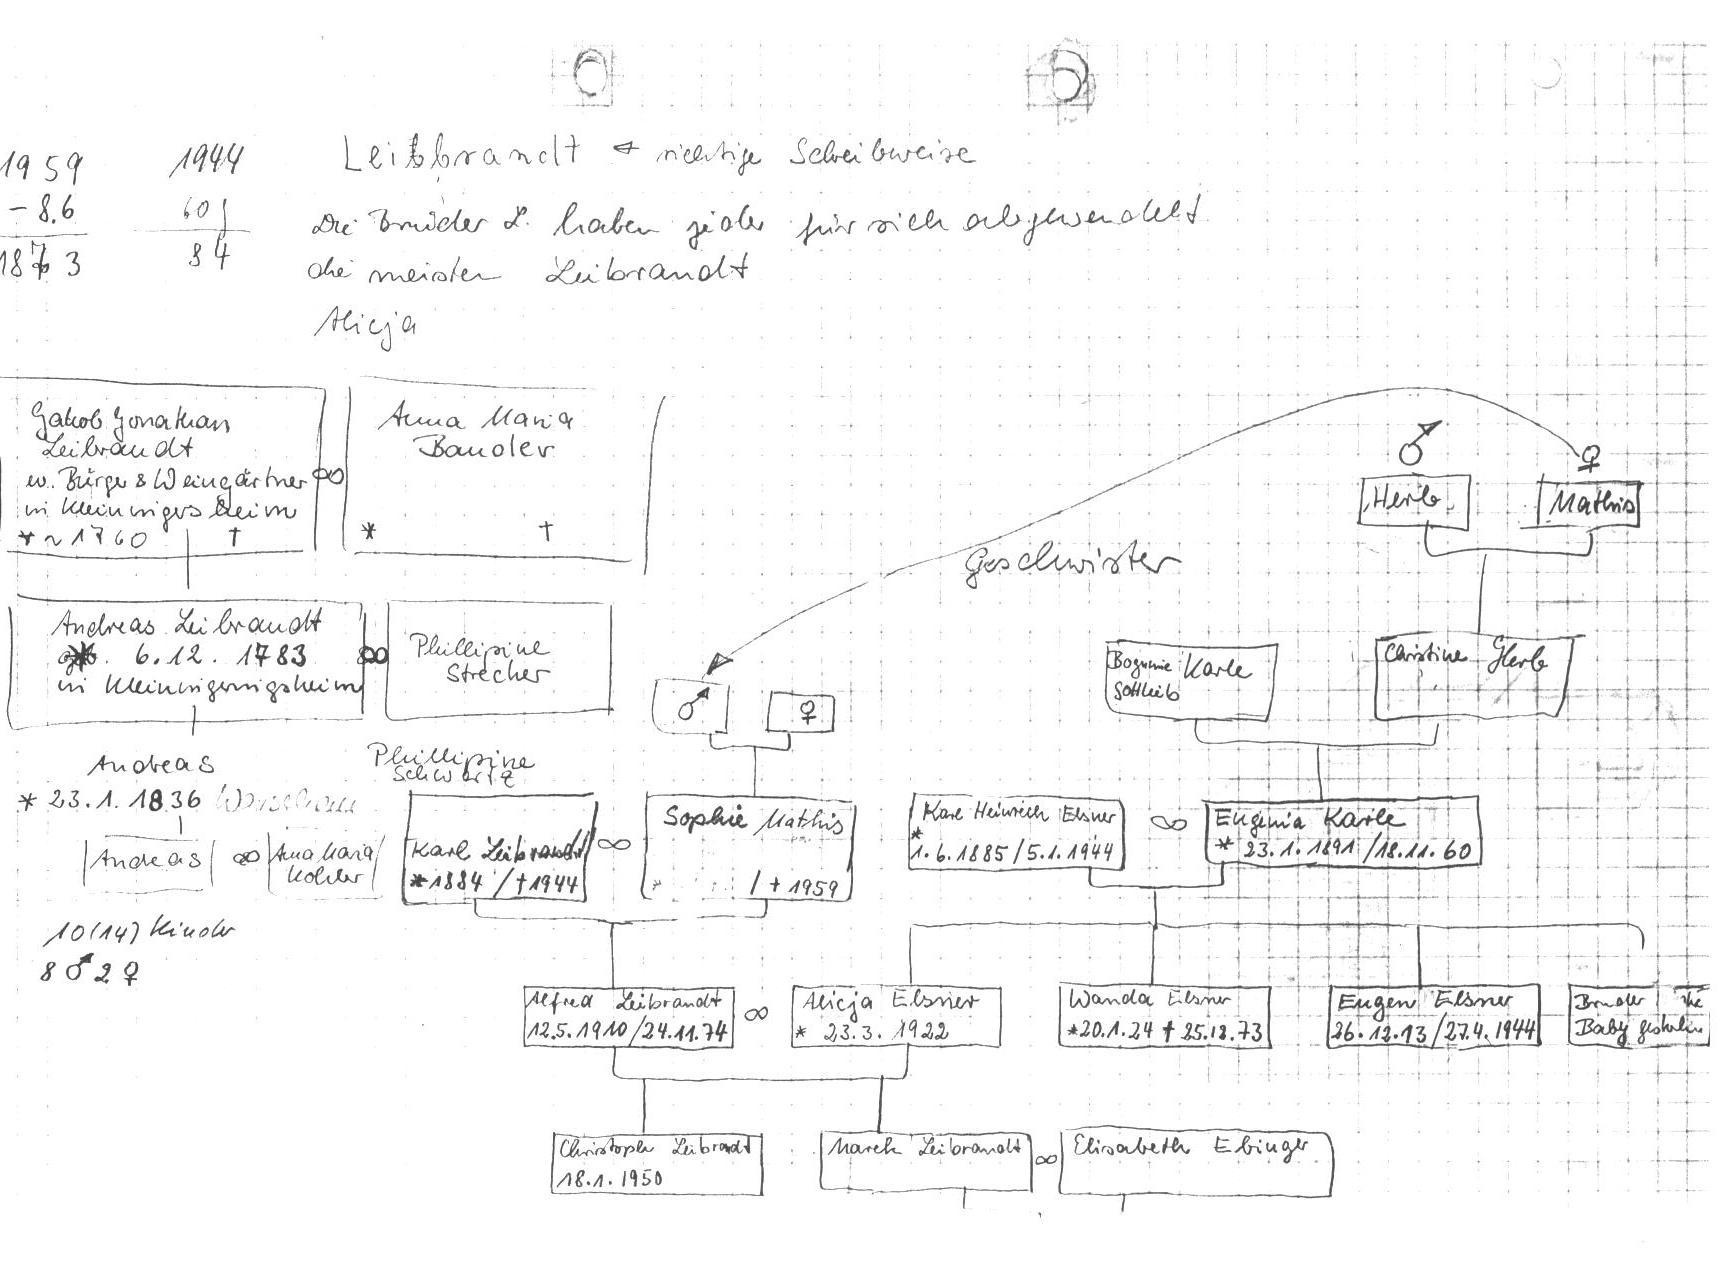 1959
- 86
1873
1944
60
84
Leibbrandt richtige Schreibweise
die Brüder L. haben jeder für sich abgewandelt
die meisten Leibrandt
Alicja
Jakob Jonathan
Leibrandt
w. Bürger & Weingärtner
in Kleiningersheim
* ~ 1760 †
∞
Anna Maria
Bauder
* †
Andreas Leibrandt
* 6.12. 1783
in
∞
Phillipine
Strecher
Andreas
* 23.1. 1836
Phillipine
Andreas
∞
Anna Maria
Kohler
10(14) Kinder
8 ♂ 2 ♀
Geschwister
♂
♀
Herb
Mathis
♂
♀
Bogumie Karle
Gottlieb
Christine Herb
Karl Leibrandt
* 1884 / † 1944
∞
Sophie Mathis
* / † 1959
Karl Heinrich Elsner
*
1.6.1885/5.1.1944
∞
Eugenia Karle
* 23.1.1891 /18.11.60
Alfred Leibrandt
12.5.1910/24.11.74
∞
Alicja Elsner
* 23.3. 1922
Wanda Elsner
*20.1.24 † 25.12.73
Eugen Elsner
26.12.13/27.4.1944
Bruder
Baby gestorben
Christoph Leibrandt
18.1.1950
Marek Leibrandt
∞
Elisabeth Ebinger